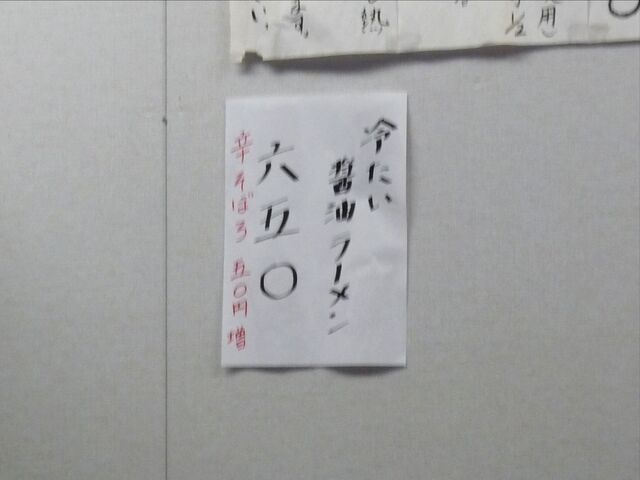 冷たい
醤油ラーメン
六五〇
辛そぼろ 五〇円増